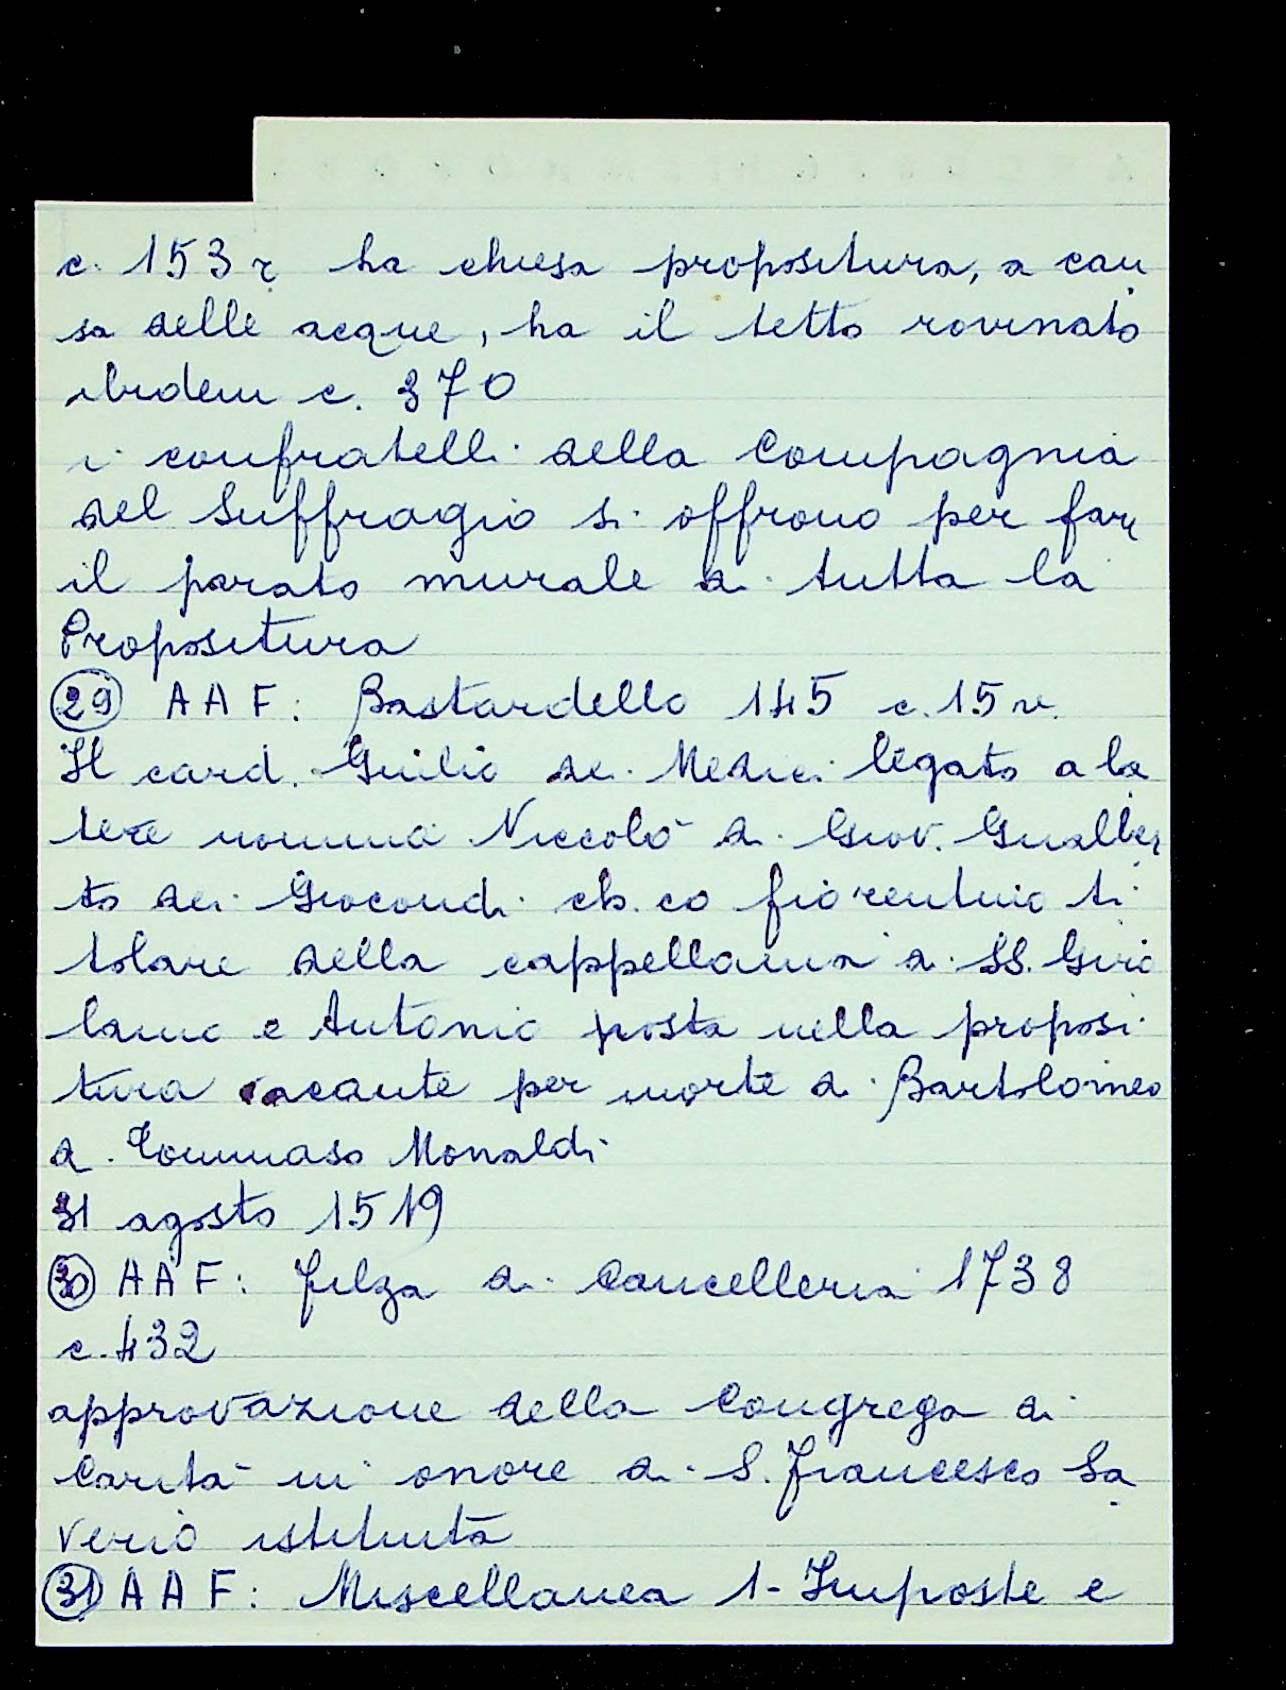 c. 153 r ha chiesa propositura, a cau
sa delle acque, ha il tetto rovinato
ibidem c. 370
i confratelli della Compagnia
del Suffragio si offrono per far
il parato murale a tutta la
Propositura
29 AAF: Bastardello 145 c. 15 v.
Il card. Giulio de Medici legato a la
tere nomina Niccolò di Giov. Gualber
to dei Giocondi ch.co fiorentino ti
tolare della cappellania di SS. Giro
lamo e Antonio posta nella proposi
tura vacante per morte di Bartolomeo
di Tommaso Monaldi
31 agosto 1519
30 AAF: filza di Cancelleria 1738
c. 432
approvazione della Congrega di
Carità in onore di S. Francesco Sa
verio istituita
31 AAF: Miscellanea 1- Imposte e